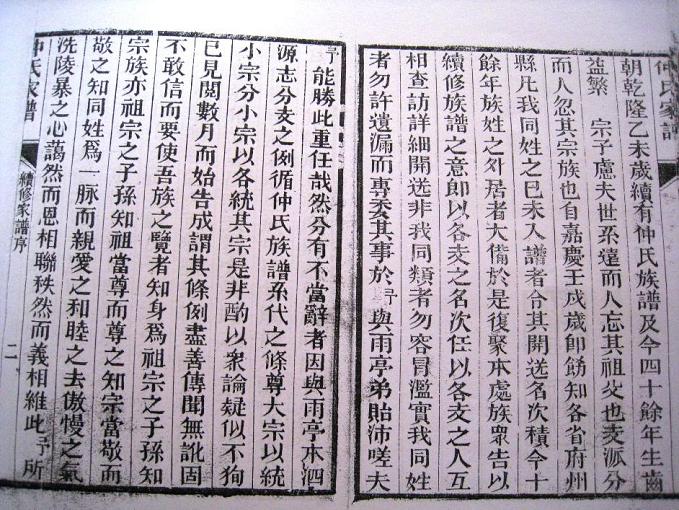 仲氏家譜
朝乾隆乙未歲續有仲氏族譜及今四十餘年生齒
益繁 宗子慮夫世系遠而人忘其祖父也支派分
而人忽其宗族也自嘉慶壬戌歲卽飭知各省府州
縣凡我同姓之已未入譜者合其開送名次積今十
餘年族姓之外居者大備於是復聚本處族衆告以
續修族譜之意卽以各支之名次任以各支之人互
相查訪詳細開送非我同類者勿容冒濫實我同姓
者勿許遺漏而專委其事於予與雨亭弟貽沛嗟夫
予能勝此重任哉然分有不當辭者因與雨亭本泗
源志分支之例循仲氏族譜系代之條尊大宗以統
小宗分小宗以各統其宗是非酌以衆論疑似不狥
已見閱數月而始告成謂其條例盡善傳聞無訛固
不敢信而要使吾族之覽者知身爲祖宗之子孫知
宗族亦祖宗之子孫知祖當尊而尊之知宗當敬而
敬之知同姓爲一脈而親愛之和睦之去傲慢之氣
洗陵暴之心藹然而恩相聯秩然而義相維此予所
仲氏家譜 續修家譜序 二